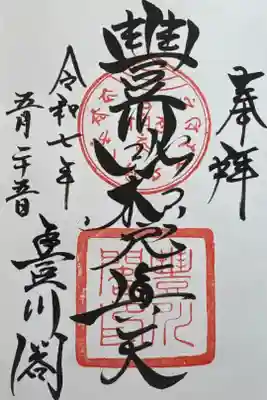 奉拝
豐川吒枳尼真天
令和七年
五月二十五日
豊川閣